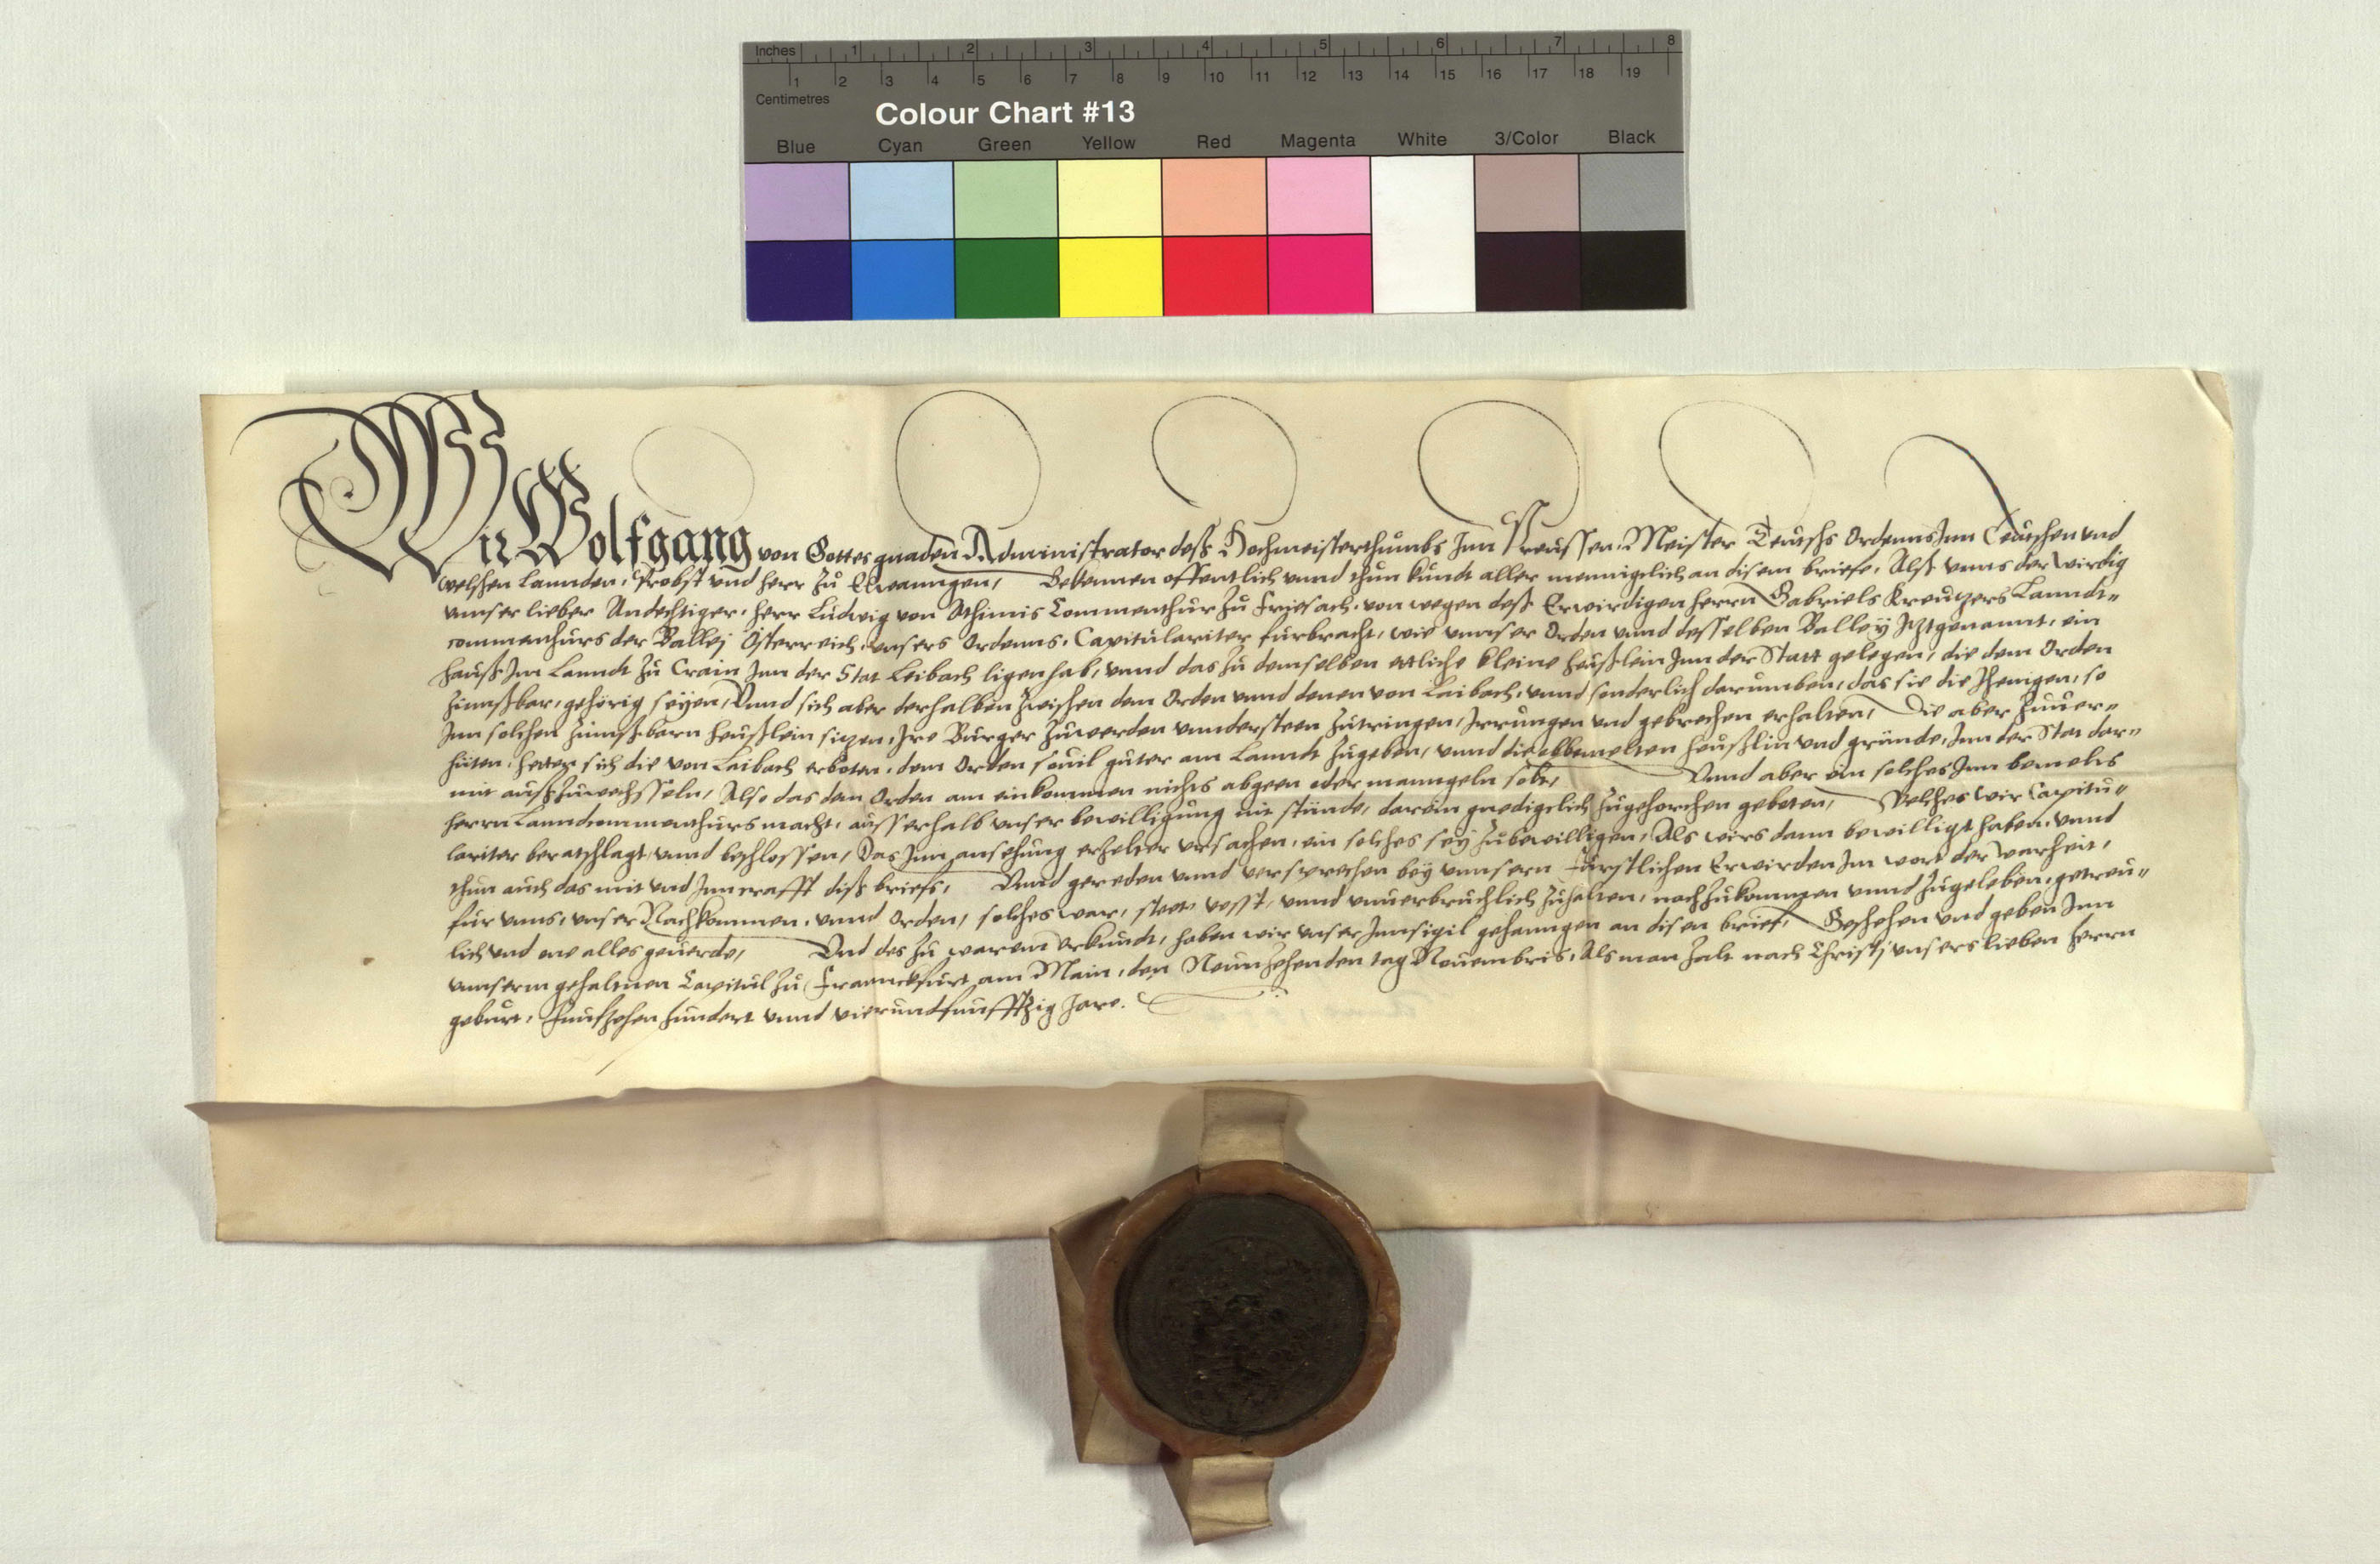 Inches 1 2 3 4 5 6 7 8
1 2 3 4 5 6 7 8 9 10 11 12 13 14 15 16 17 18 19
Centimetres
Colour Chart #13
Blue Cyan Green Yellow Red Magenta White 3/Color Black
Wir Wolfgang von Gottes gnaden Administrator desß Hochmeisterthumbs Inn Preussen, Meister Teutschs Ordenns Inn Teutschen vnd
welschen Lannden, Probst vnd herr zu Elwanngen, Bekennen offentlich vnnd thun kundt aller mennigclich an disem briefe, Alß vnns der wirdig
vnnser lieber Andechtiger, herr Ludwig von Athimis Commenthur zu Friesach, von wegen desß Erwirdigen herrn Gabriels Kreutzers Lanndt-
commenthurs der Balley Österreich, vnsers Ordenns, Capitulariter furbracht, wie vnnser Orden vnnd desselben Balley Itztgenannt, ein
hauß Im Lanndt zu Crain Inn der Stat Leibach ligen hab, vnnd das zu demselben ettliche kleine heußlein Inn der Statt gelegen, die dem Orden
zinnßbar, gehörig seyen, Vnnd sich aber derhalben zwischen dem Orden vnnd denen von Laibach, vnnd sonderlich darumben, das sie die Jhenigen, so
Inn solchen zinnßbarn heußlein sitzen, Ire Burger zuwerden vnndersteen zutringen, Irrungen vnd gebrechen erhalten, Die aber zuuer-
hüten, hetten sich die von Laibach erboten, dem Orden souil güter am Lanndt zugeben, vnnd die obbemelten heußlin vnd gründe, Inn der Stat dar-
mit außzuwechsseln, Also das dem Orden am einkommen nichts abgeen oder manngeln solt, Vnnd aber ein solches Inn bemelts
herrn Lanndcommenthurs macht, ausserhalb vnser bewilligung nit stünde, darein gnedigclich zugehorchen gebeten, Welches wir Capitu-
lariter beratschlagt, vnnd beschlossen, Das Inn ansehung erzelter vrsachen, ein solches sey zubewilligen, Als wirs dann bewilligt haben, vnnd
thun auch das mit vnd Inn crafft diß briefs, Vnnd gereden vnnd versprechen bey vnnsern Fürstlichen Erwirden Im wort der warheit,
für vnns, vnser Nachkommen, vnnd Orden, solches war, steet vesst, vnnd vnuerbrüchlich zuhalten, nachzukommen vnnd zugeleben, getreu-
lich vnd one alles geuerde, Vnd des zu warem vrkundt, haben wir vnser Innsigil gehanngen an disen brief, Geschehen vnd geben Inn
vnnserm gehaltnen Capitul zu Franncksurt am Main, den Neunzehenden tag Nouembris, Als man zalt nach Christi vnsers lieben herrn
geburt, Funfzehen hundert vnnd vierundfunfftzig Jare.